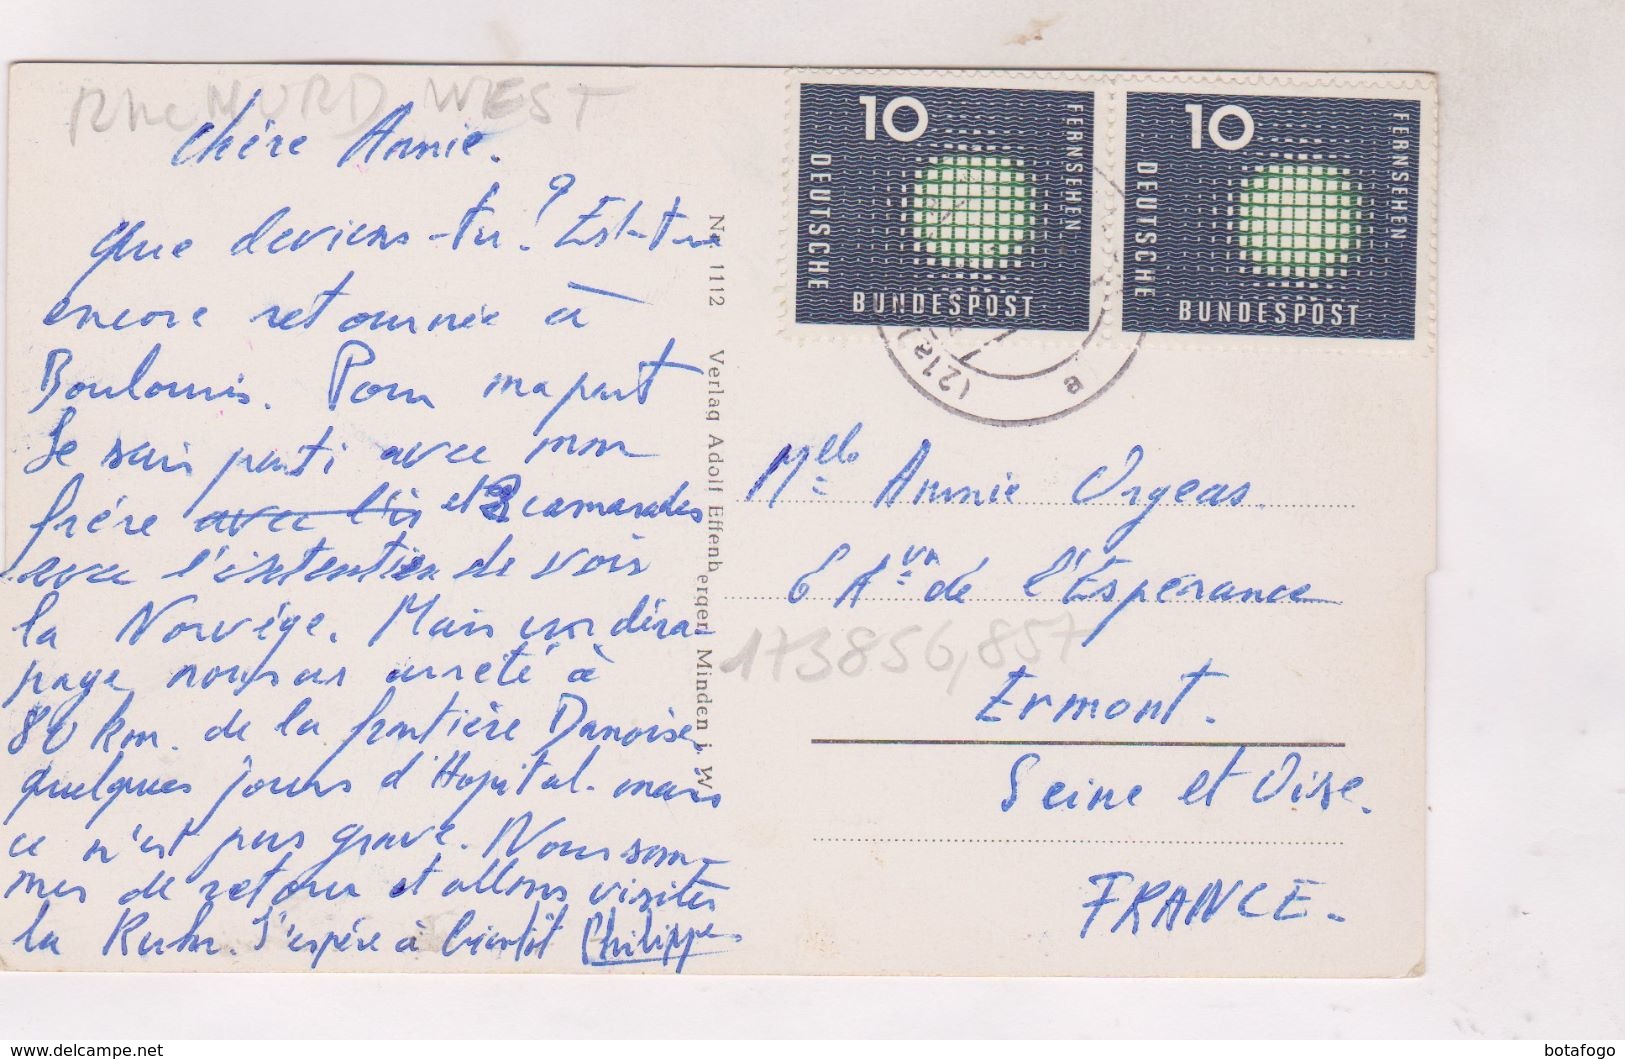 Rhe NORD WEST
Chére Annie.
Que deviens-tu? Est-tu
encore retournée à
Boulouris. Pour ma part
Je suis parti avec mon
frére avec l'i et 2 camarades
avec l'intention de voir
la Norvége. Mais un déra-
page nous as arreté à
80 km. de la frontière Danoise,
quelques jours d'Hopital. mais
ce n'est pas grave. Nous som-
mes de retour et allons visiter
la Ruhr. J'espére à bientôt Philippe
No 1112 Verlag Adolf Effenberger, Minden i. W.
10
FERNSEHEN
DEUTSCHE
BUNDESPOST
10
FERNSEHEN
DEUTSCHE
BUNDESPOST
(21a)
e
Mlle Annie Orgeas.
6 Avn de l'Espérance
173856,857
Ermont.
Seine et Oise.
FRANCE.
www.delcampe.net
botafogo